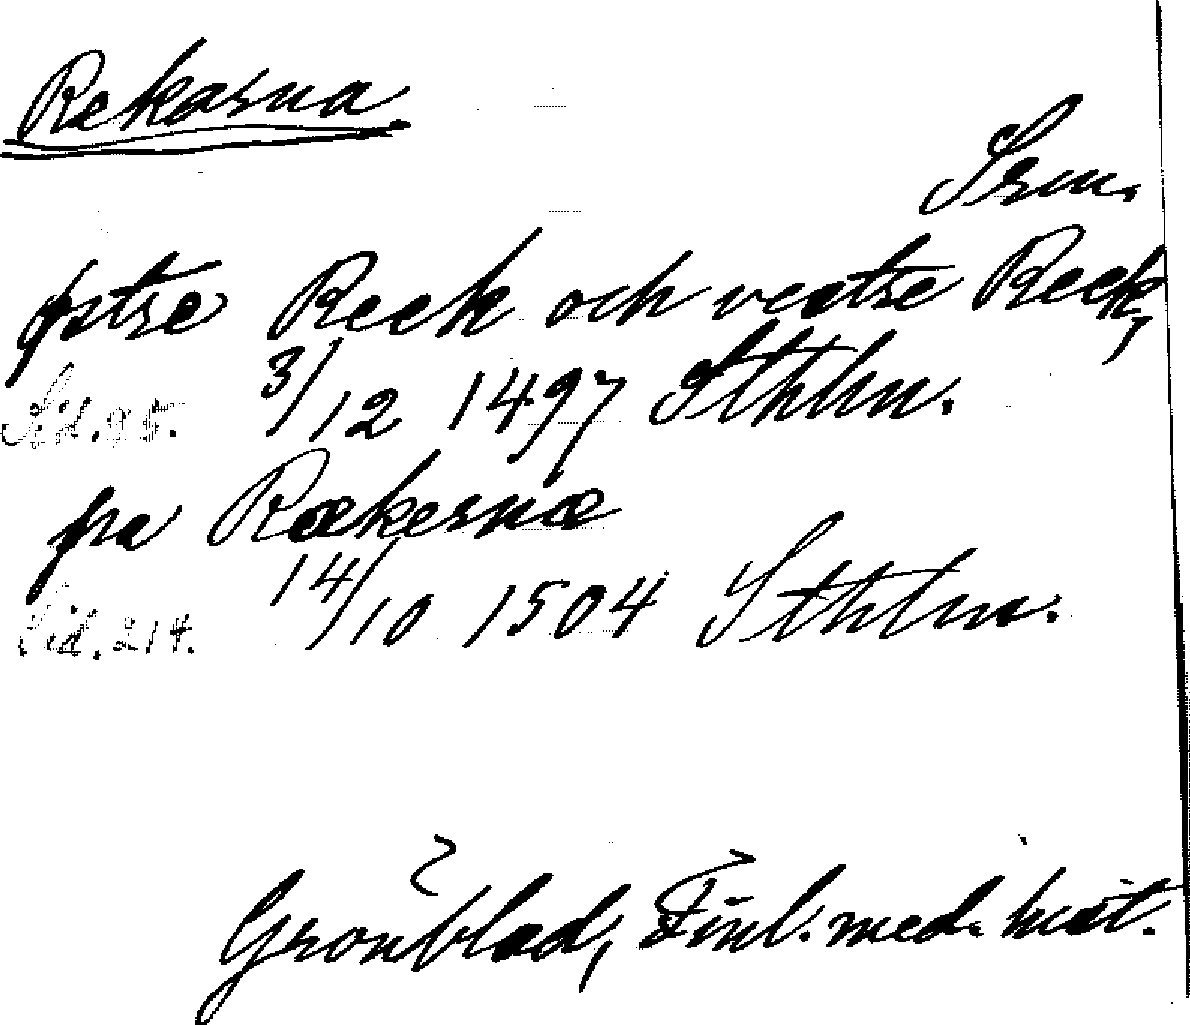 Rekarna.
Srm.
østre Reek och vestre Reek,
3/12 1497 Sthlm.
fra Rækernæ
Sid. 214. 14/10 1504 Sthlm.
Grönblad, Finl. med. hist.